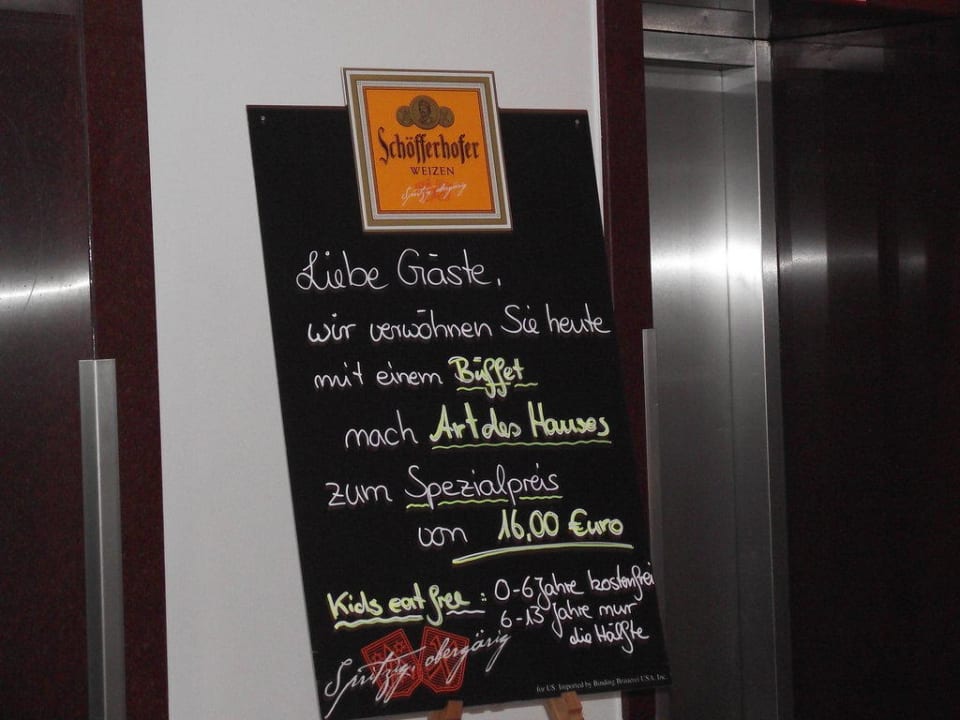 Schöfferhofer
WEIZEN
Spritzig, obergärig
Liebe Gäste,
wir verwöhnen Sie heute
mit einem Büffet
nach Art des Hauses
zum Spezialpreis
von 16,00 Euro
Kids eat free : 0-6 Jahre kostenfrei
6-13 Jahre nur
die Hälfte
Spritzig, obergärig
for US: Imported by Binding Brauerei USA, Inc.